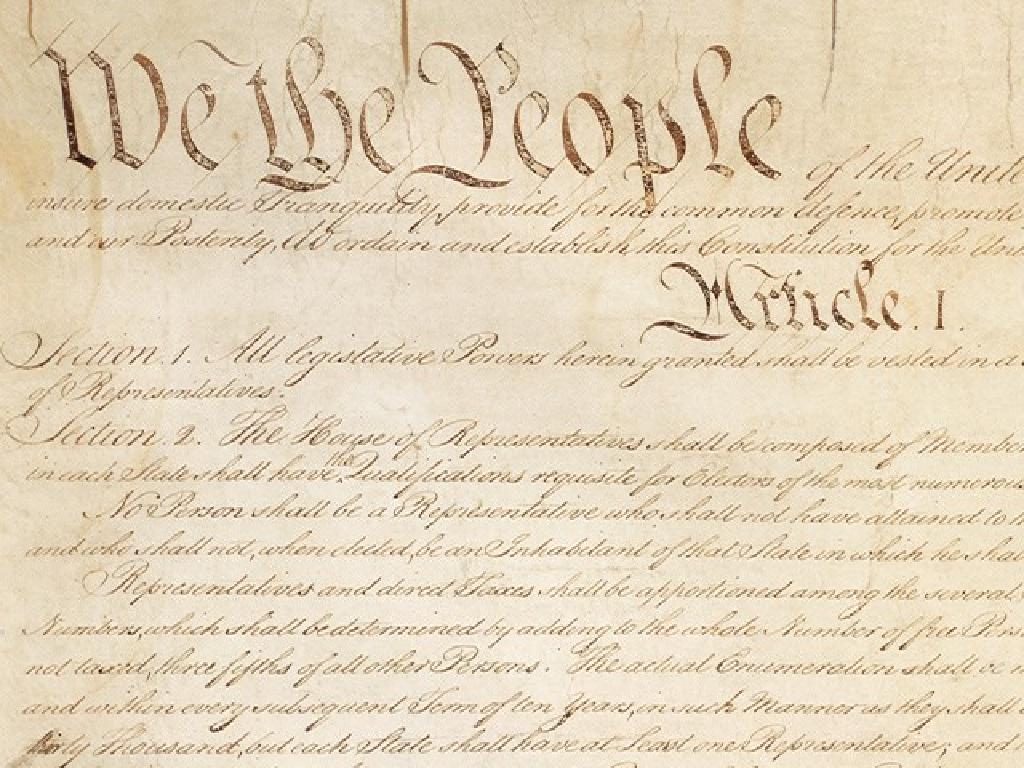 We the People of the Unite
insure domestic Tranquility, provide for the common defence, promote
and our Posterity, do ordain and establish this Constitution for the Unit
Article. I.
Section. 1. All legislative Powers herein granted shall be vested in a
of Representatives.
Section. 2. The House of Representatives shall be composed of Member
in each State shall have the Qualifications requisite for Electors of the most numerous
No Person shall be a Representative who shall not have attained to
and who shall not, when elected, be an Inhabitant of that State in which he shal
Representatives and direct Taxes shall be apportioned among the several
Numbers, which shall be determined by adding to the whole Number of free Pers
not taxed, three fifths of all other Persons. The actual Enumeration shall be m
and within every subsequent Term of ten Years, in such Manner as they shall
thirty Thousand, but each State shall have at Least one Representative; and